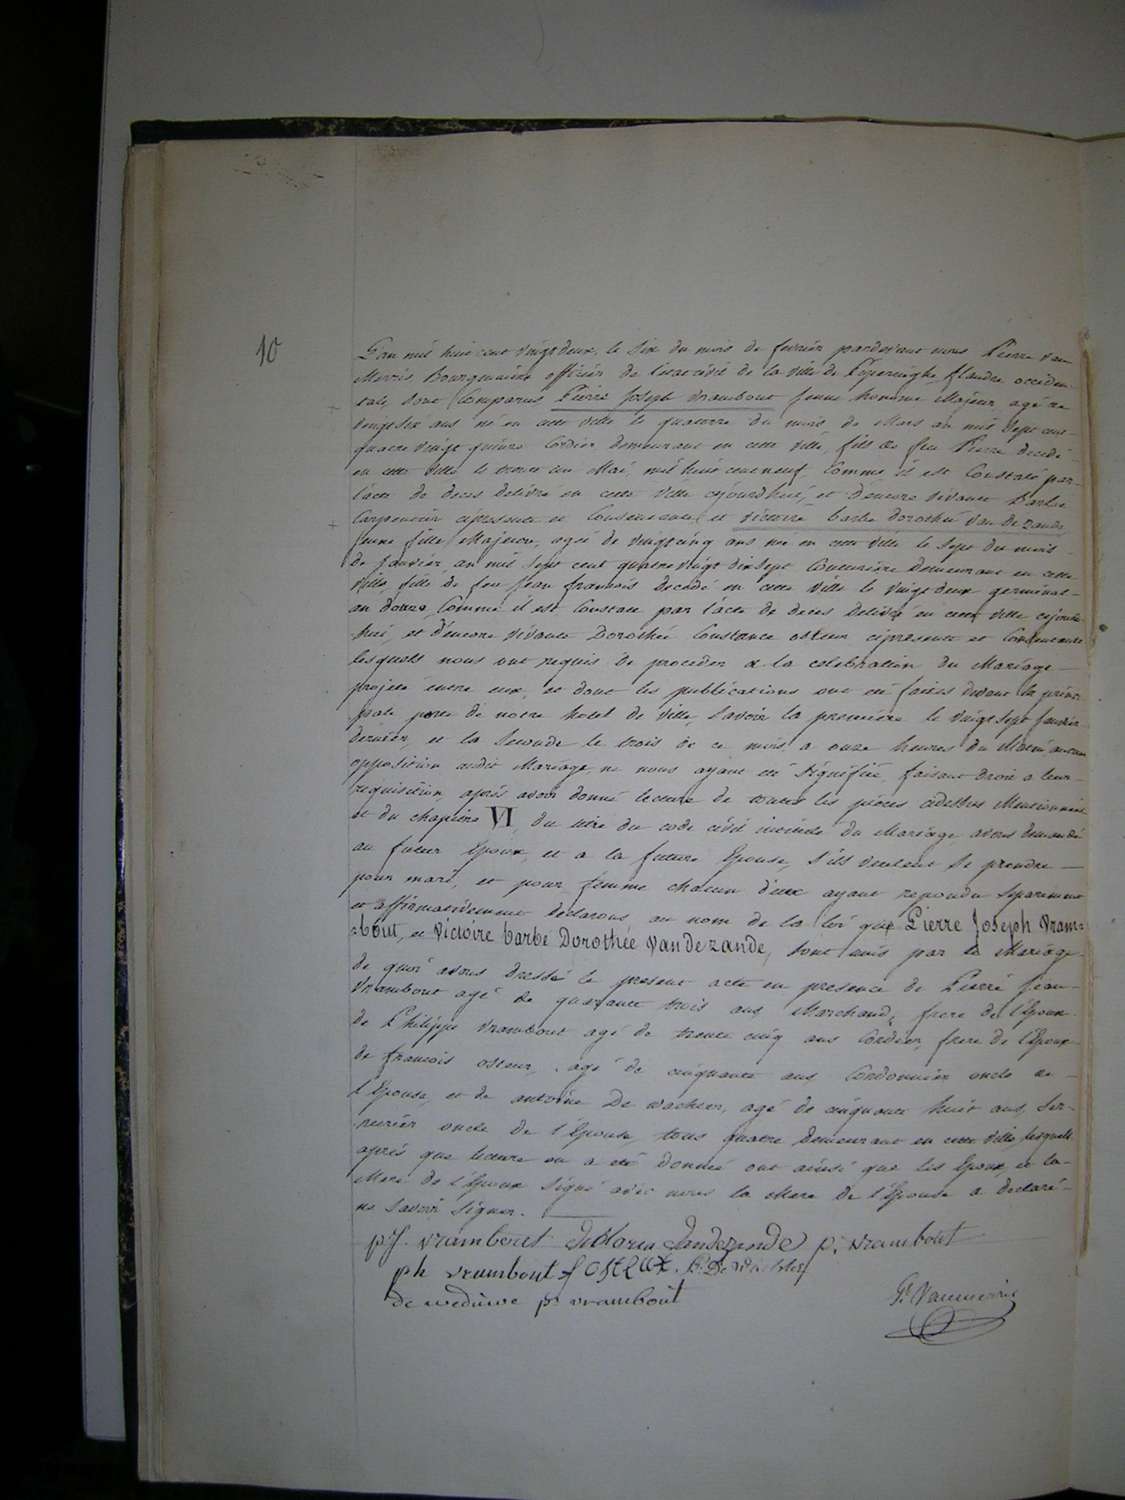 10
L'an mil huit cent vingt deux, le six du mois de fevrier pardevant nous Pierre Van
Merris Bourguemaitre officier de l'etat civil de la ville de Poperinghe flandre occiden-
tale, sont Comparus Pierre Joseph Vrambout jeune homme Majeur, agé de
vingt six ans né en cette ville le quatorze du mois de Mars an mil sept cent
quatre vingt quinze Cordier demeurant en cette ville, fils de feu Pierre decedé
en cette ville le trente un Mai mil huit cent neuf, Comme il est Constaté par
l'acte de deces delivré en cette ville cejourdhui, et d'encore vivante Barbe
Carpentier cipresente et Consentante, et Victoire barbe Dorothée Van de Zande
jeune fille Majeure, agé de vingt cinq ans né en cette ville le sept du mois
de Janvier an mil sept cent quatre vingt dix sept Couturière demeurant en cette
ville fille de feu Jean francois decedé en cette ville le vingt deux germinal
an douze, Comme il est Constaté par l'acte de deces delivré en cette ville cejourd-
hui, et d'encore vivante Dorothée Constance osteux cipresente et Consentante
lesquels nous ont requis de proceder a la celebration du Mariage
projeté entre eux, et dont les publications ont été faites devant la princi
pale porte de notre hotel de Ville, Savoir la première le vingt sept Janvier
dernier, et la seconde le trois de ce mois a onze heures du Matin aucune
opposition audit Mariage ne nous ayant été signifiée, faisant droit a leur
requisition, après avoir donné lecture de toutes les pièces cidessus Mentionnées
et du chapitre VI, du titre du code civil intitulé du Mariage, avons demandé
au futur Epoux, et a la future Epouse, s'ils veulent se prendre
pour mari, et pour femme chacun d'eux ayant repondu separement
et affirmativement declarons au nom de la loi que Pierre Joseph Vram=
=bout, et Victoire barbe Dorothée Van de zande, sont unis par le Mariage
de quoi avons dressé le present acte en presence de Pierre Jean
Vrambout agé de quarante trois ans Marchand, frere de l'Epoux
de Philippe Vrambout agé de trente cinq ans Cordier, frere de l'Epoux
de francois osteux, agé de cinquante ans Cordonnier oncle de
l'Epouse, et de antoine De wachter, agé de cinquante huit ans, Ser-
rurier oncle de l'Epouse, tous quatre demeurant en cette ville, lesquels
après que lecture en a eté donnée ont ainsi que les Epoux, et la
Mere de l'Epoux signé avec nous la Mere de l'Epouse a declaré
ne savoir signer.
pJ. vrambout Vandezande p. vrambout
ph vrambout f osteux
de weduwe p vrambout
P. Vanmerris